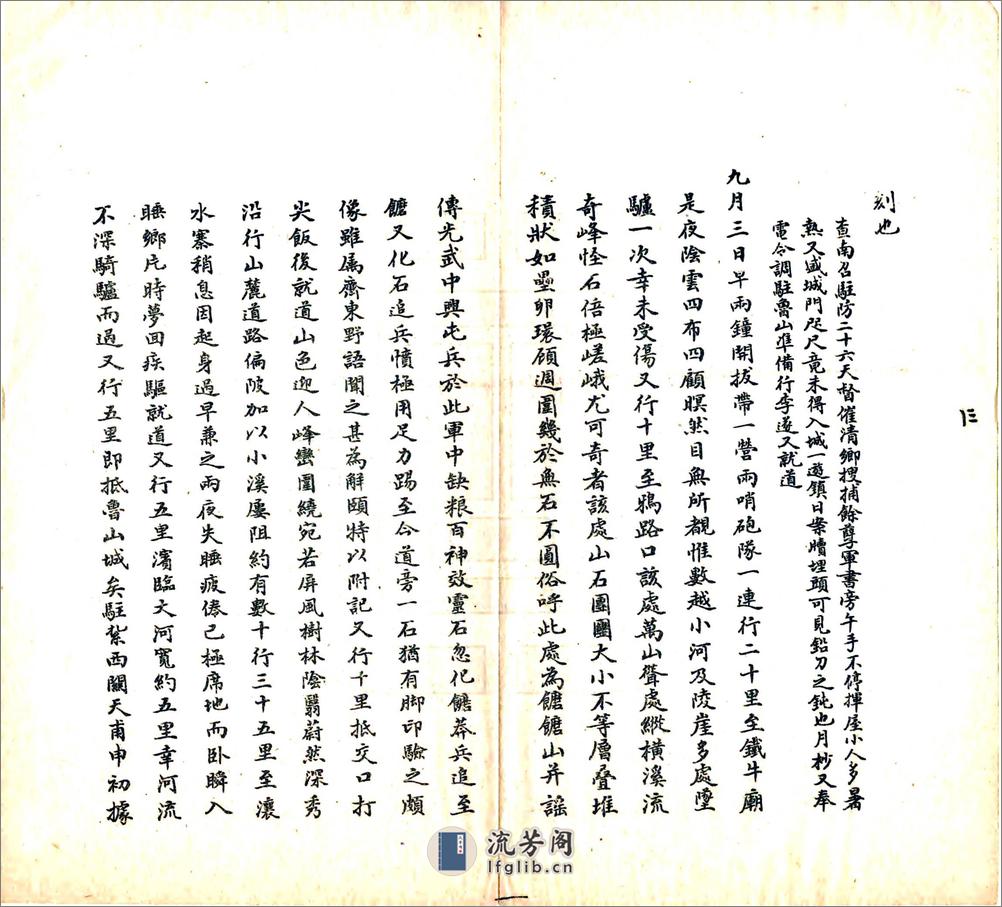 刻也
查南召駐防二十六天督催清鄉搜捕餘孽軍書旁午手不停揮屋小人多暑
熱又盛城門咫尺竟未得入城一遊鎮日案牘埋頭可見鉛刀之鈍也月杪又奉
電令調駐魯山準備行李遂又就道
九月三日早兩鐘開拔帶一營兩哨砲隊一連行二十里至鐵牛廟
是夜陰雲四布四顧暝然目無所覩惟數越小河及陵崖多處墮
驢一次幸未受傷又行十里至鴉路口該處萬山聳處縱橫溪流
奇峰怪石倍極嵯峨尤可奇者該處山石團團大小不等層叠堆
積狀如壘卵環顧週圍幾於無石不圓俗呼此處為饝饝山并謠
傳光武中興屯兵於此軍中缺粮百神效靈石忽化饝莽兵追至
饝又化石追兵憤極用足力踢至今道旁一石猶有脚印驗之頗
像雖属齊東野語聞之甚為解頤特以附記又行千里抵交口打
尖飯後就道山色迎人峰巒圍繞宛若屏風樹林陰翳蔚然深秀
沿行山麓道路偏陂加以小溪屢阻約有數十行三十五里至瀼
水寨稍息因起身過早兼之兩夜失睡疲倦已極席地而卧瞬入
睡鄉片時夢回疾驅就道又行五里濱臨大河寬約五里幸河流
不深騎驢而過又行五里即抵魯山城矣駐紮西關天甫申初據
流芳阁
lfglib.cn